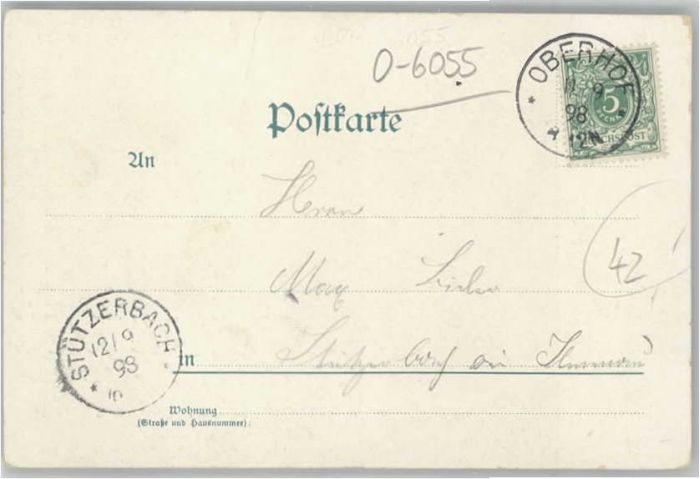 O-6055
OBERHOF
11 9
98
12N
5
PFENNIG
REICHSPOST
Postkarte
An
Herrn
Max
42
STÜTZERBACH
12/9
98
in Stützerbach
Wohnung
(Straße und Hausnummer):